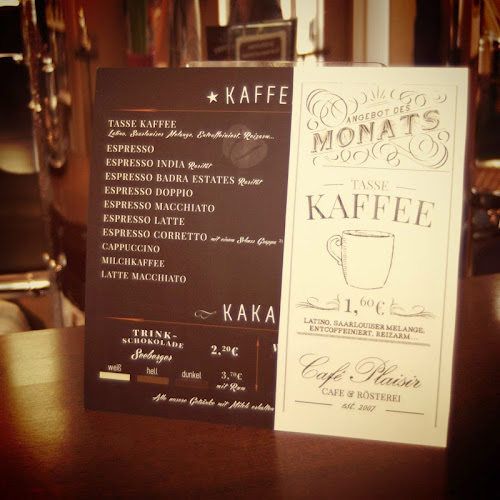 ★ KAFFE
TASSE KAFFEE
Latino, Saarlouiser Melange, Entcoffeiniert, Reizarm...
ESPRESSO
ESPRESSO INDIA Rarität
ESPRESSO BADRA ESTATES Rarität
ESPRESSO DOPPIO
ESPRESSO MACCHIATO
ESPRESSO LATTE
ESPRESSO CORRETTO mit einem Schuss Grappa
CAPPUCCINO
MILCHKAFFEE
LATTE MACCHIATO
KAKA
TRINK-
SCHOKOLADE
Seeberger
2,20€
weiß hell dunkel
3,70€
mit Rum
Alle unsere Getränke mit Milch erhalten
ANGEBOT DES
MONATS
TASSE
KAFFEE
1,60€
LATINO, SAARLOUISER MELANGE,
ENTCOFFEINIERT, REIZARM...
Café Plaisir
CAFE & RÖSTEREI
est. 2007